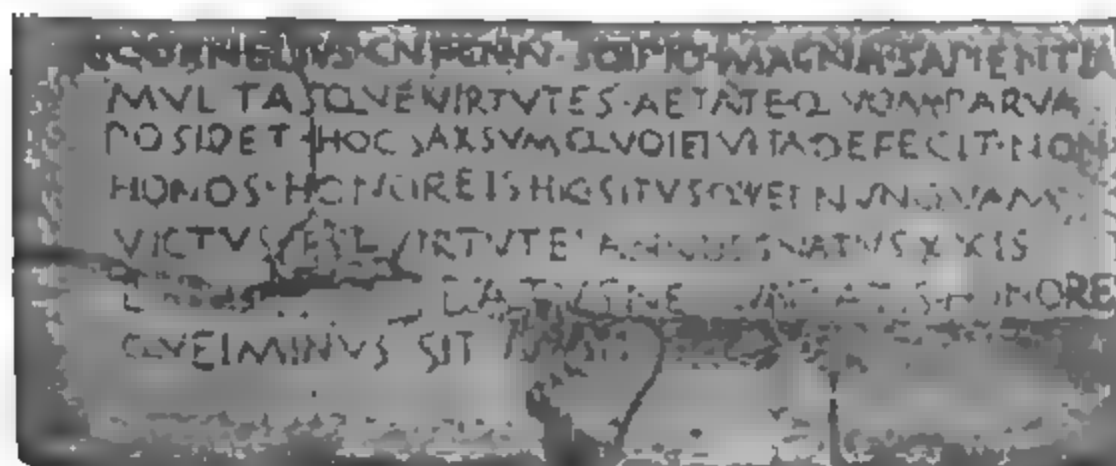 CORNELIVS·CN·F·CN·N·SCIPIO·MAGNA·SAPIENTIA
MVLTASQVE VIRTVTES·AETATE·QVOM·PARVA
POSIDET·HOC SAXSVM QVOIEI VITA DEFECIT·NON
HONOS·HONORE IS HIC SITVS QVEI NVNQVAM
VICTVS EST VIRTVTEI ANNOS GNATVS XX IS
HONORE
QVEI MINVS SIT